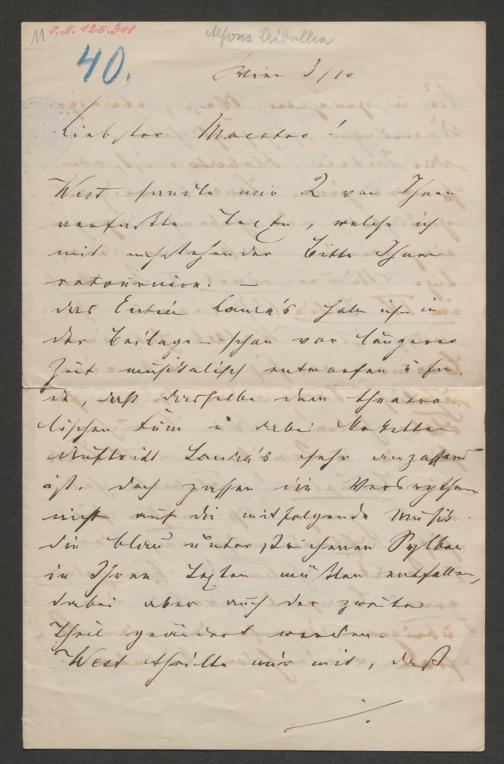 11 I.N. 125.311
Alfons Czibulka
40.
Wien 3/10
Liebster Maestro!
West sandte mir 2 von Ihnen
verfaßte Texte, welche ich
mit nachstehender Bitte Ihnen
retournire. —
Das Entrée Laura's habe ich in
der Beilage schon vor längerer
Zeit musikalisch entworfen u. fin-
de, daß dasselbe dem theatra-
lischen u dabei koketten
Auftritt Laura's sehr anpassend
ist. Doch passen die Versrythmen
nicht auf die mitfolgende Musik
die blau unterstrichenen Sylben
in Ihren Texten müßten entfallen,
dabei aber auch der zweite
Theil geändert werden.
West theilte mir mit, daß
./.